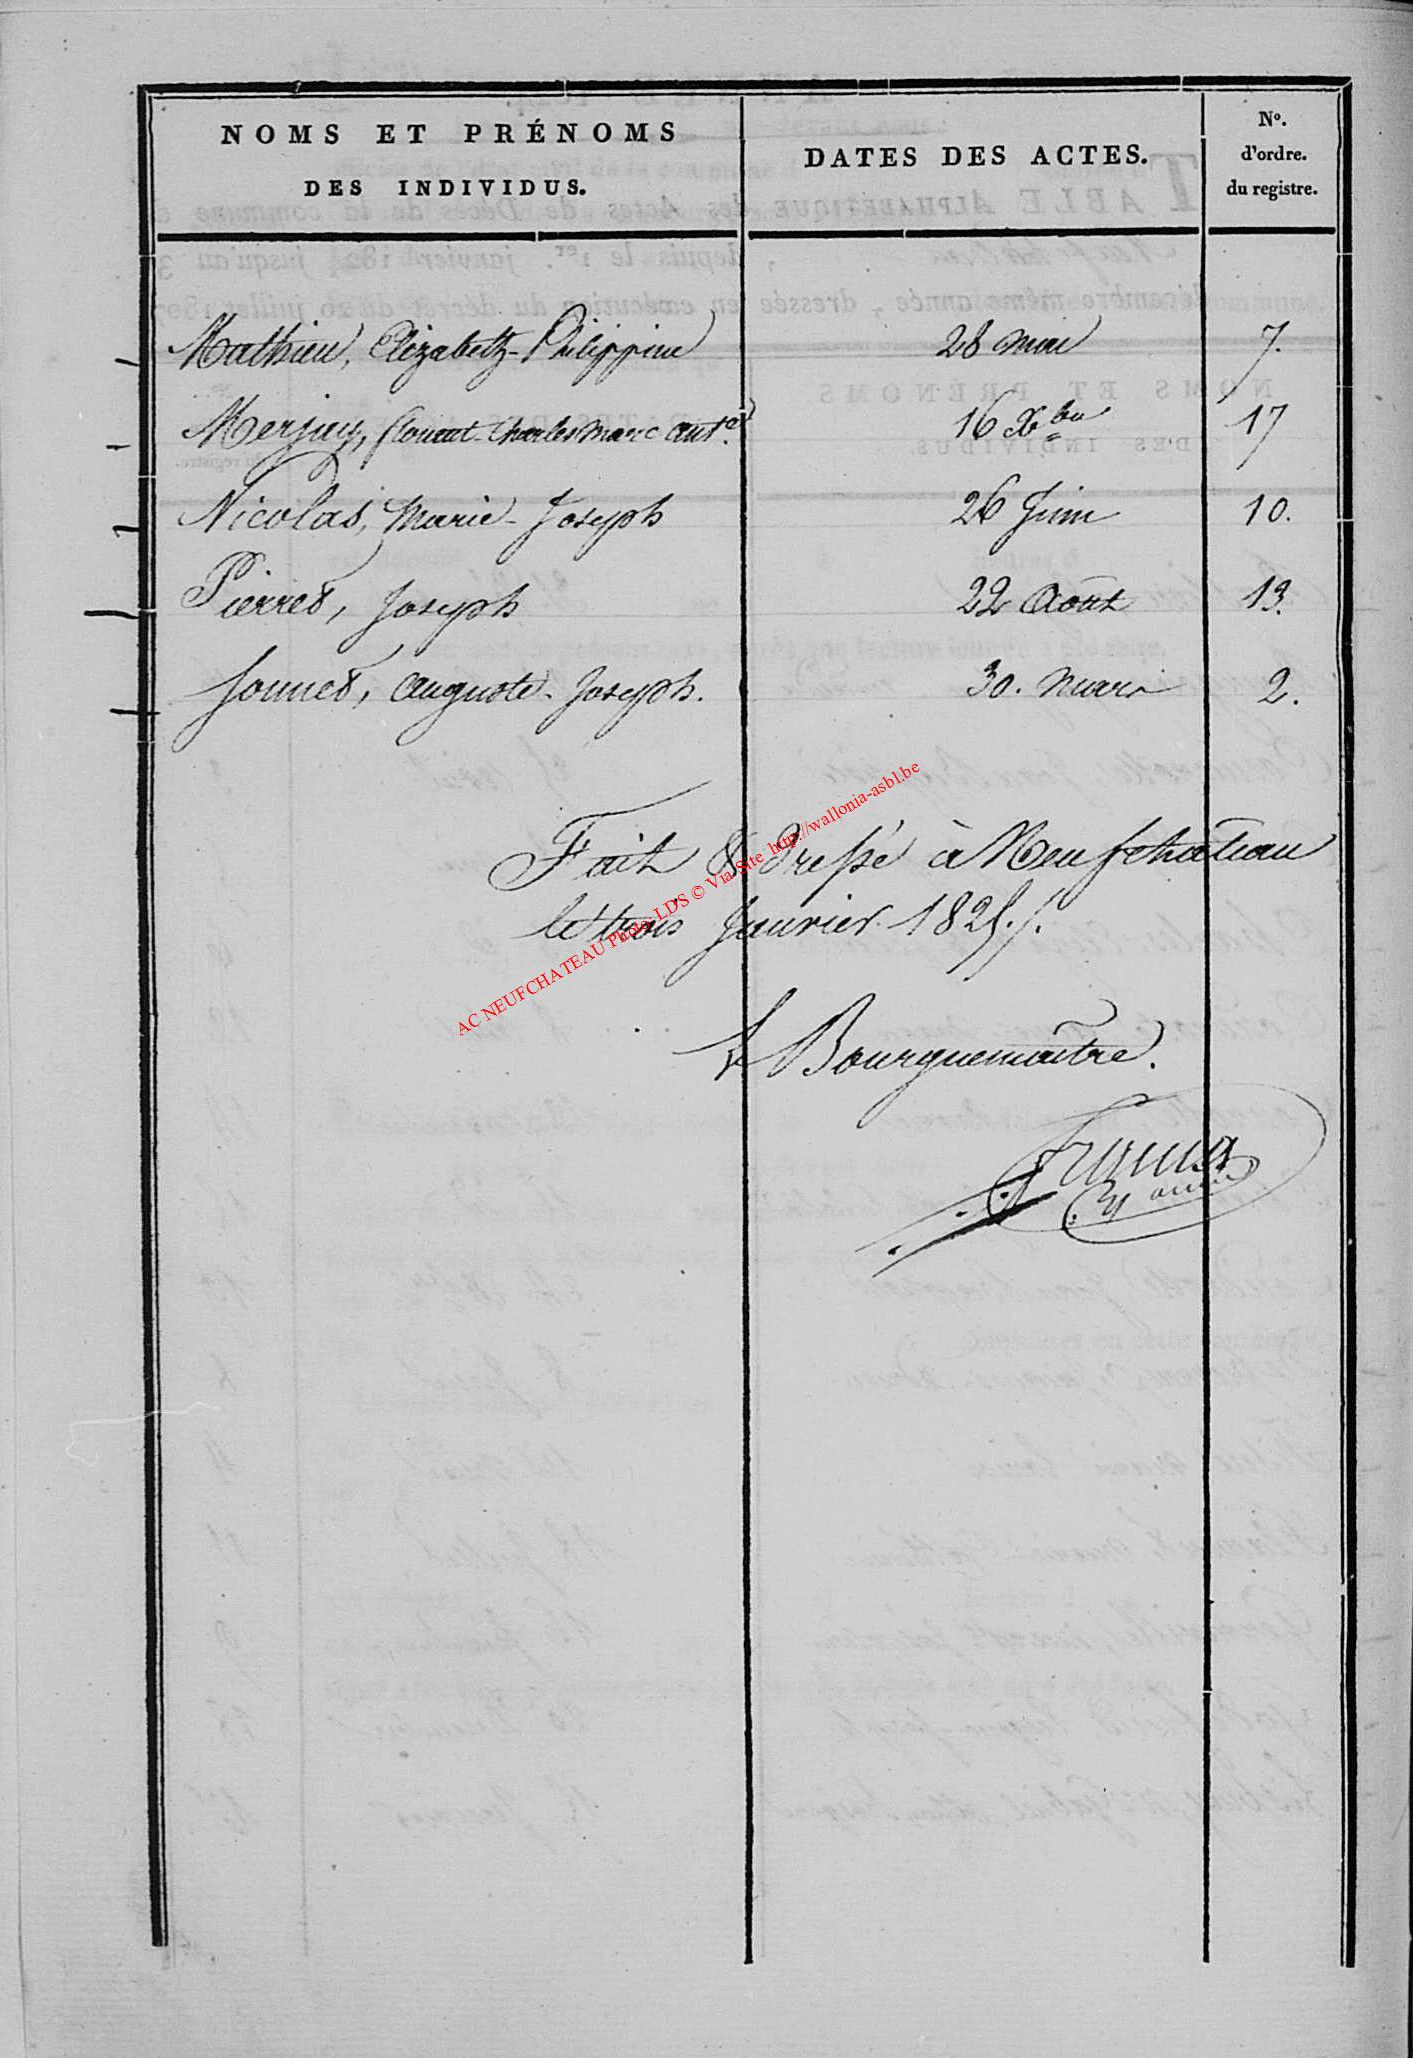 NOMS ET PRÉNOMS
DES INDIVIDUS.
DATES DES ACTES.
Nº.
d'ordre.
du registre.
Mathieu, Elizabeth-Philippine 28 mai 7.
Merjay, florent-Charles Marc Ant.e 16 Xbre 17
Nicolas, Marie-Joseph 26 Juin 10.
Pierret, Joseph 22 Août 13.
Jonnet, Auguste-Joseph. 30. Mars 2.
Fait & Dressé à Neufchateau
le trois Janvier 1825./.
le Bourguemaître.
AC NEUFCHATEAU Photo. LDS © Via Site http://wallonia-asbl.be